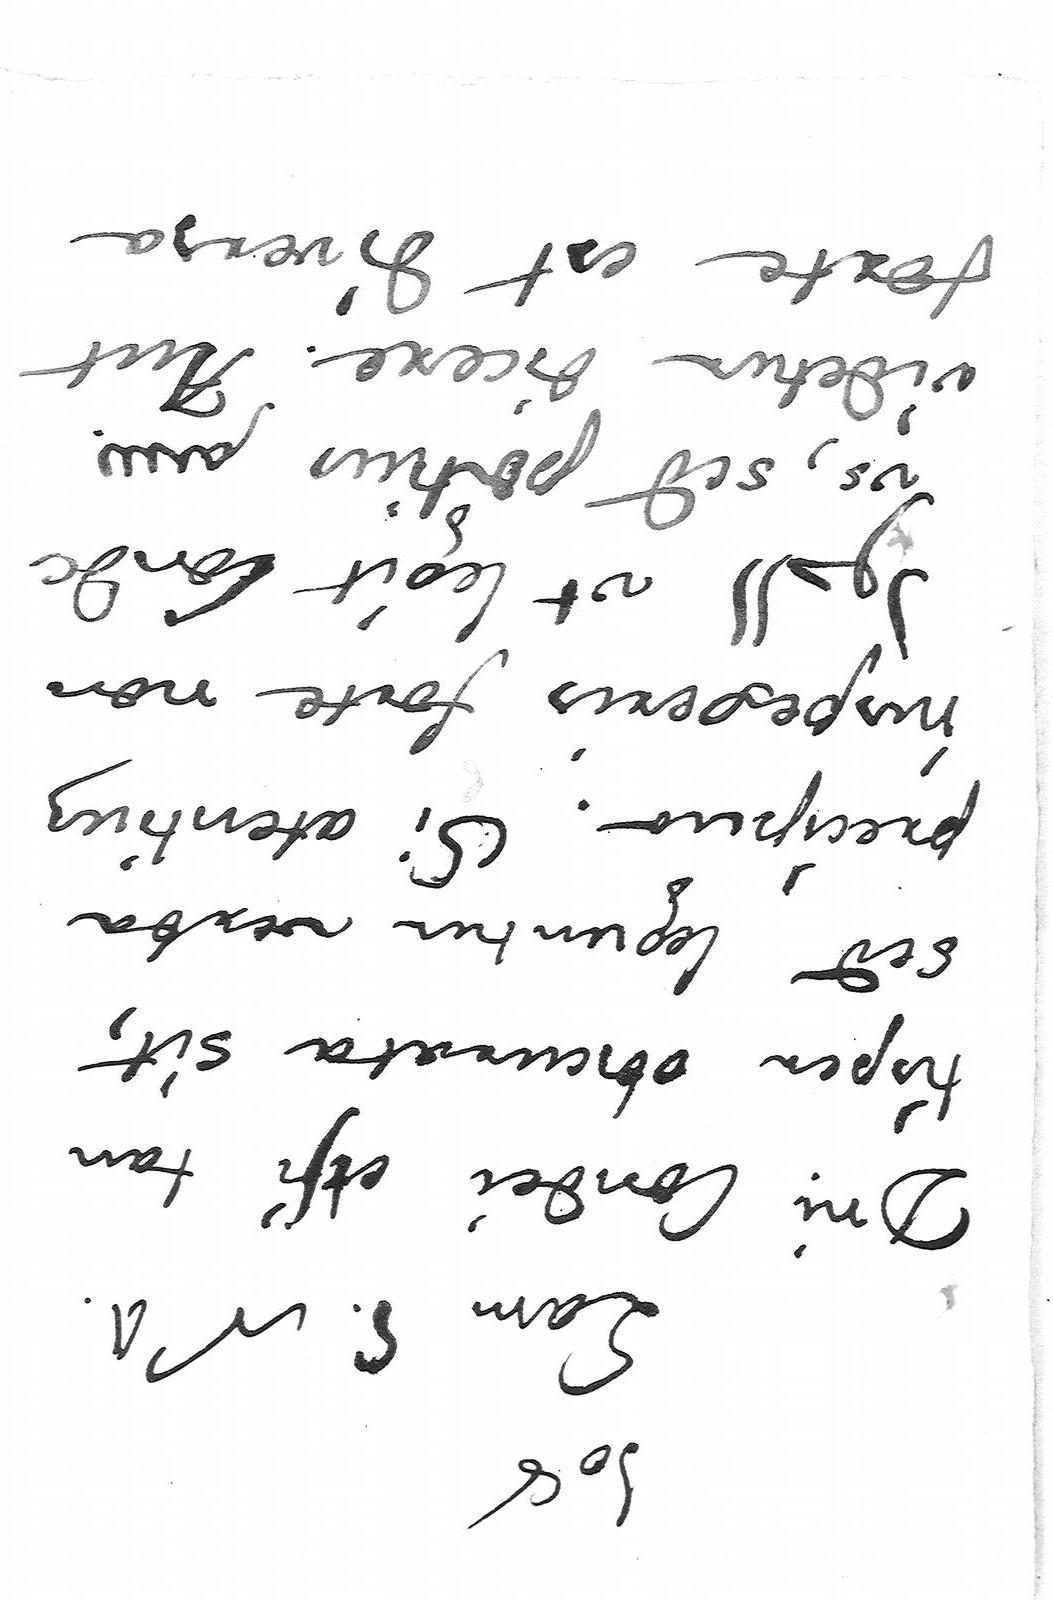 S. N A.
Dni. Condei etsi tan
tisper obscurata sit,
sed leguntur verba
precipua. Si atentius
inspexeris forte non
ut legit Conde
us, sed potius
videtur dicere. Aut
forte est diversa